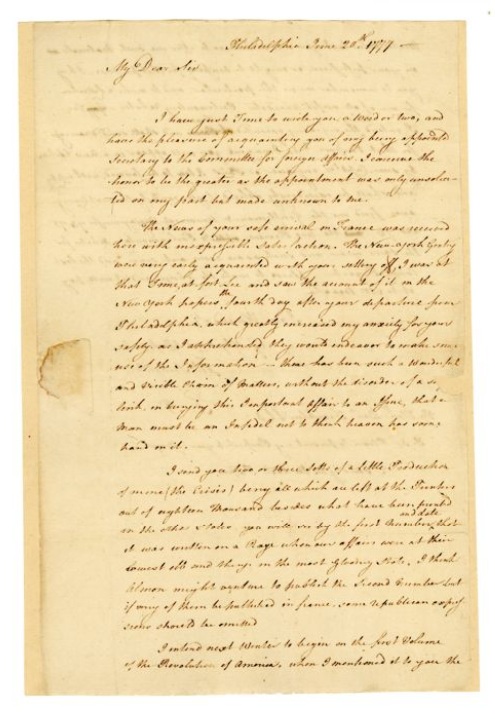 Philadelphia June 20th 1777 —
My Dear Sir
I have just Time to write you a Word or two, and
have the pleasure of acquainting you of my being appointed
Secretary to the Committee for foreign Affairs. I conceive the
honor to be the greater as the appointment was only unsolici-
ted on my part but made unknown to me.
The News of your safe arrival in France was received
here with inexpressible Satisfaction. The New-York Gentry
were very early acquainted with your setting off, I was at
that Time, at fort Lee and saw the account of it in the
New York papers the fourth day after your departure from
Philadelphia, which greatly encreased my anxiety for your
safety as I apprehended they would endeavor to make some
use of the Information — there has been such a Wonderful
and visible Chain of Matters, without the disorder of a
link, in bringing this Important Affair to an Issue, that a
Man must be an Infidel not to think heaven has some
hand in it.
I send you two or three setts of a little Production
of mine (the Crisis) being all which are left at the Printers
out of eighteen Thousand besides what have been printed
in the other States you will see by the first Number and date, that
it was written in a Rage when our affairs were at their
lowest ebb and things in the most gloomy State, I think
Almon might venture to publish the Second Number but
if any of them be published in france, some republican expres
sions should be omitted
I intend next Winter to begin on the first Volume
of the Revolution of America, when I mentioned it to you the